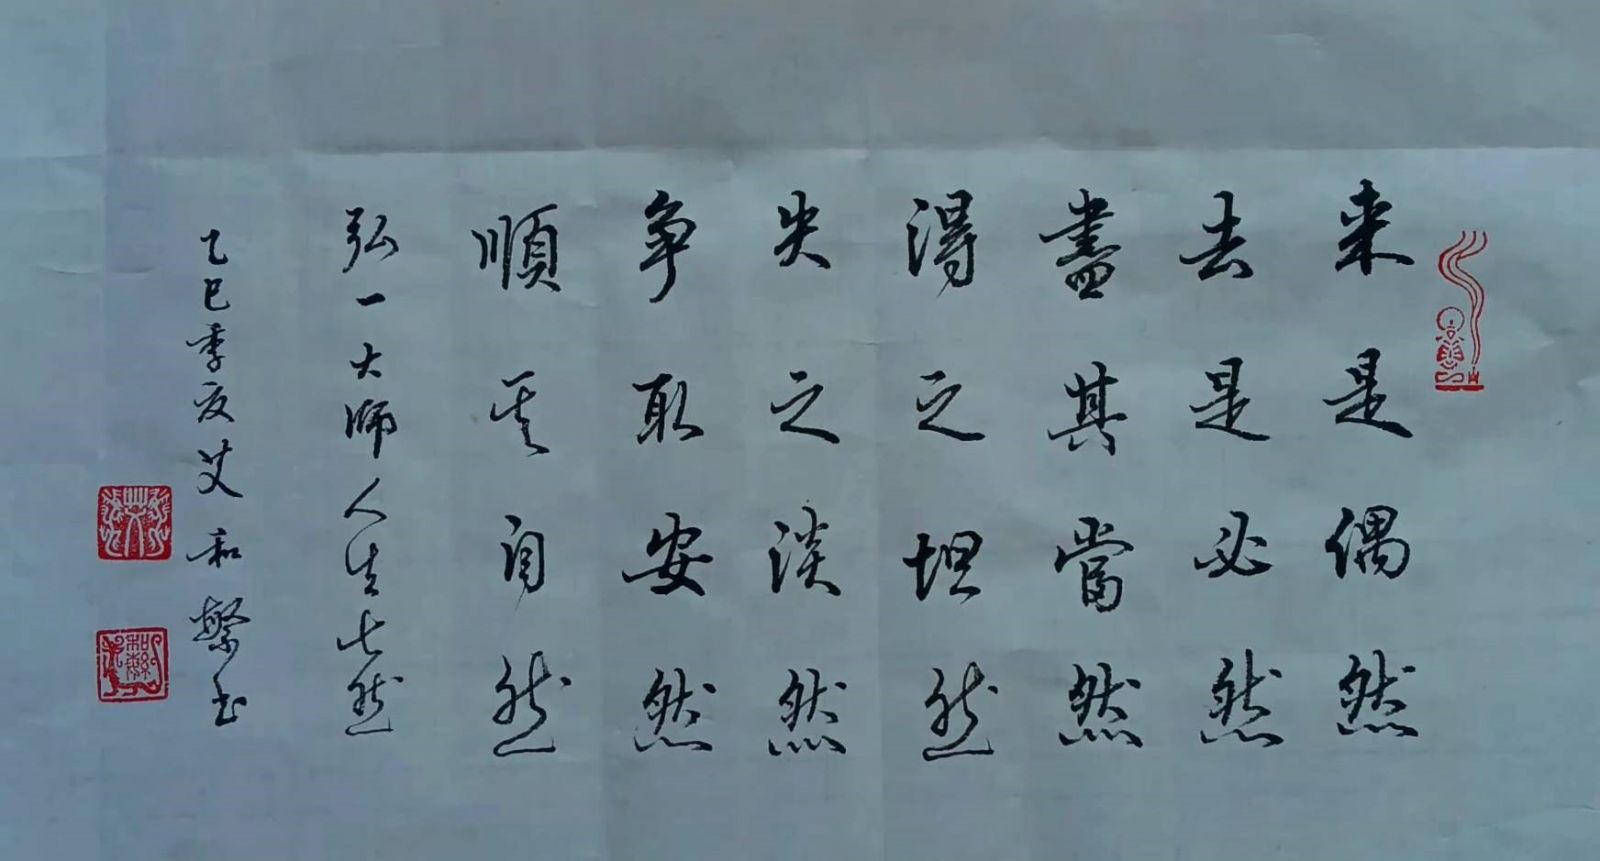 来是偶然
去是必然
盡其當然
得之坦然
失之淡然
争取安然
順其自然
弘一大师人生七然
乙巳季夏艾和繁书